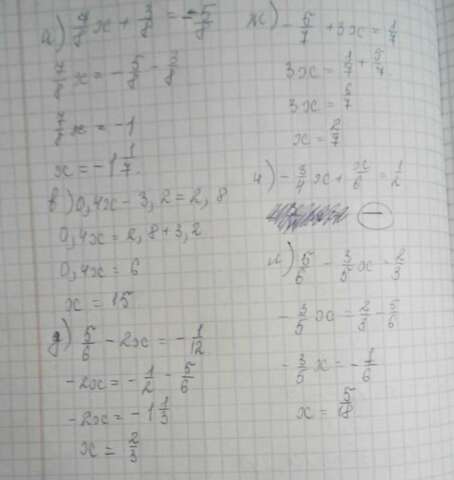 а) 7/8 x + 3/8 = -5/8
7/8 x = -5/8 - 3/8
7/8 x = -1
x = -1 1/7.
в) 0,4x - 3,2 = 2,8
0,4x = 2,8 + 3,2
0,4x = 6
x = 15
д) 5/6 - 2x = -1/12
-2x = -1/2 - 5/6
-2x = -1 1/3
x = 2/3
ж) -5/7 + 3x = 1/7
3x = 1/7 + 5/7
3x = 6/7
x = 2/7
и) -3/4 x + x/6 = 1/2
—
л) 5/6 - 3/5 x = 2/3
-3/5 x = 2/3 - 5/6
-3/5 x = -1/6
x = 5/18